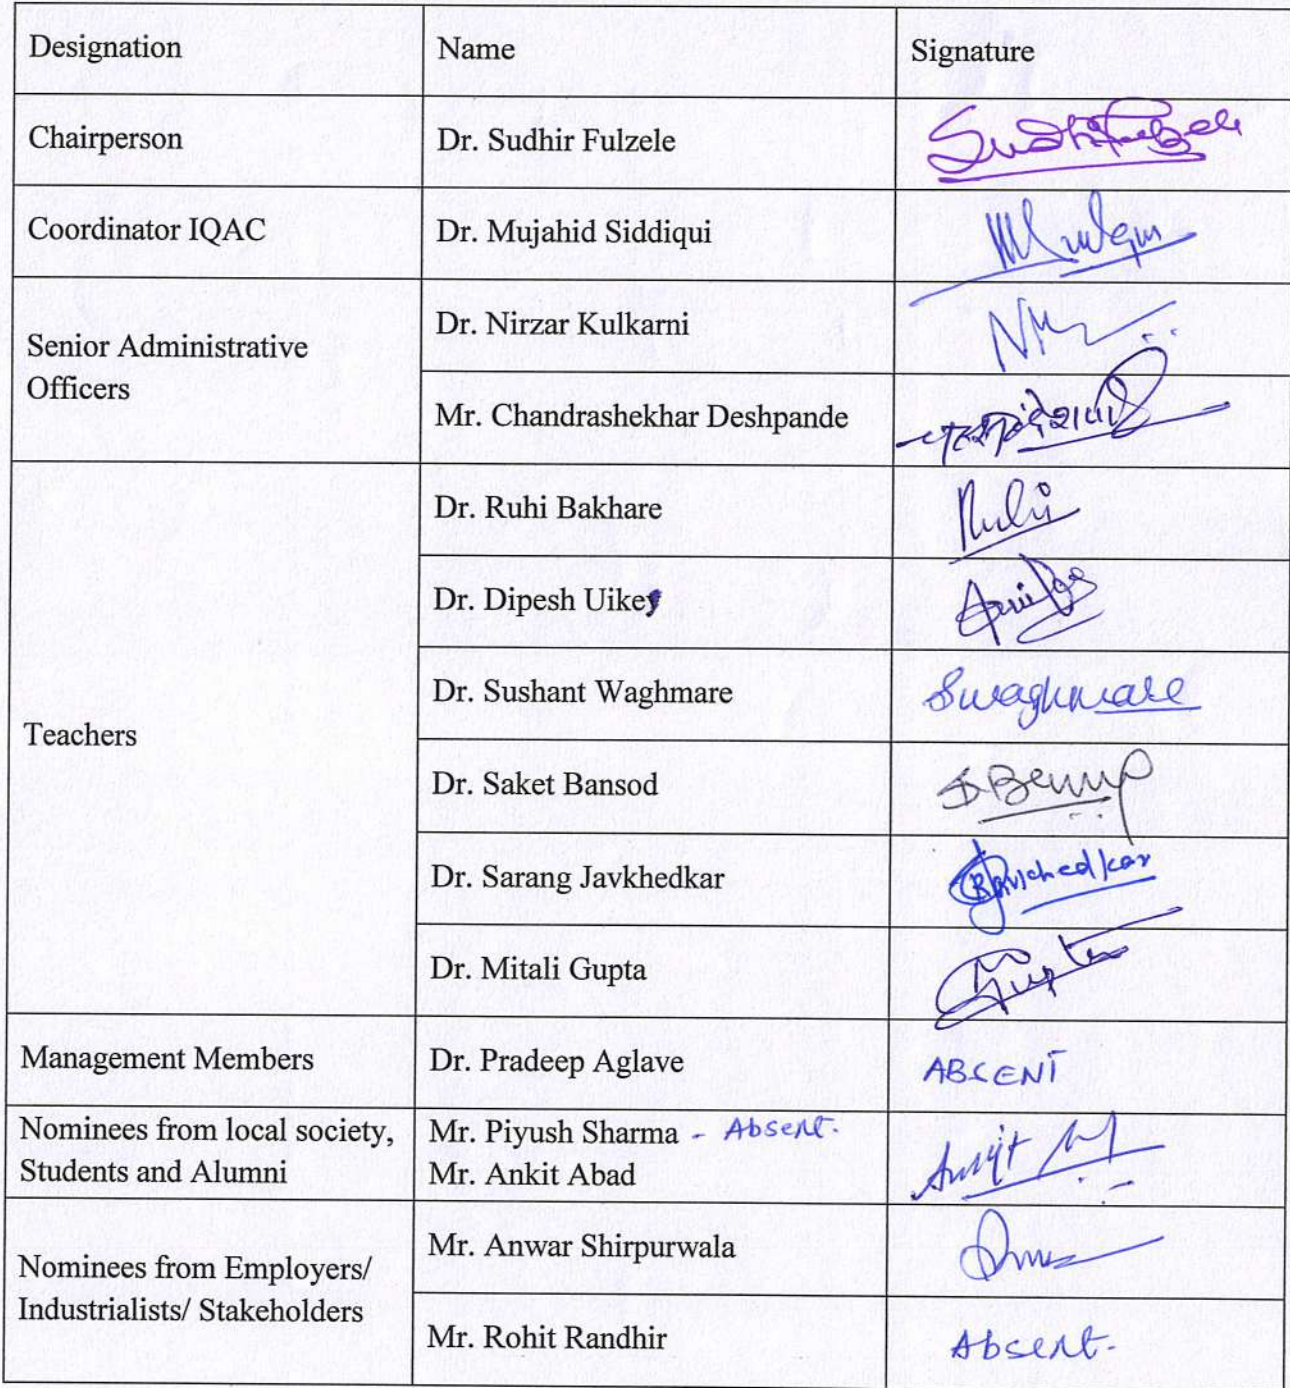 Designation Name Signature
Chairperson Dr. Sudhir Fulzele
Coordinator IQAC Dr. Mujahid Siddiqui
Senior Administrative
Officers
Dr. Nirzar Kulkarni
Mr. Chandrashekhar Deshpande
Teachers
Dr. Ruhi Bakhare Ruhi
Dr. Dipesh Uikey
Dr. Sushant Waghmare Swaghmare
Dr. Saket Bansod
Dr. Sarang Javkhedkar
Dr. Mitali Gupta Gupta
Management Members Dr. Pradeep Aglave ABSENT
Nominees from local society,
Students and Alumni
Mr. Piyush Sharma - Absent.
Mr. Ankit Abad
Nominees from Employers/
Industrialists/ Stakeholders
Mr. Anwar Shirpurwala
Mr. Rohit Randhir Absent.